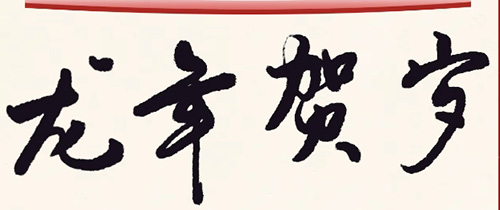 龙年贺岁